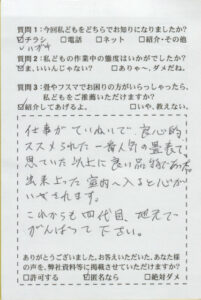 質問1:今回私どもをどちらでお知りになりましたか?
☑チラシ □電話 □ネット □紹介・その他
ハガキ
質問2:私どもの作業中の態度はいかがでしたか?
☑ま、いいんじゃない? □ありゃ~、ダメだね。
質問3:畳やフスマでお困りの方がいらっしゃったら、
私どもをご推薦いただけますか?
☑紹介してあげるよ。 □いや、教えない。
仕事がていねいで、良心的
ススメられた一番人気の畳表で
思っていた以上に良い品物であった
出来上った室内へ入ると心が
いやされます。
これからも四代目 地元で
がんばって下さい。
ありがとうございました。お答えいただいた、あなた様
の声を、弊社資料等に掲載させていただけますか?
□許可する ☑匿名なら □絶対ダメ